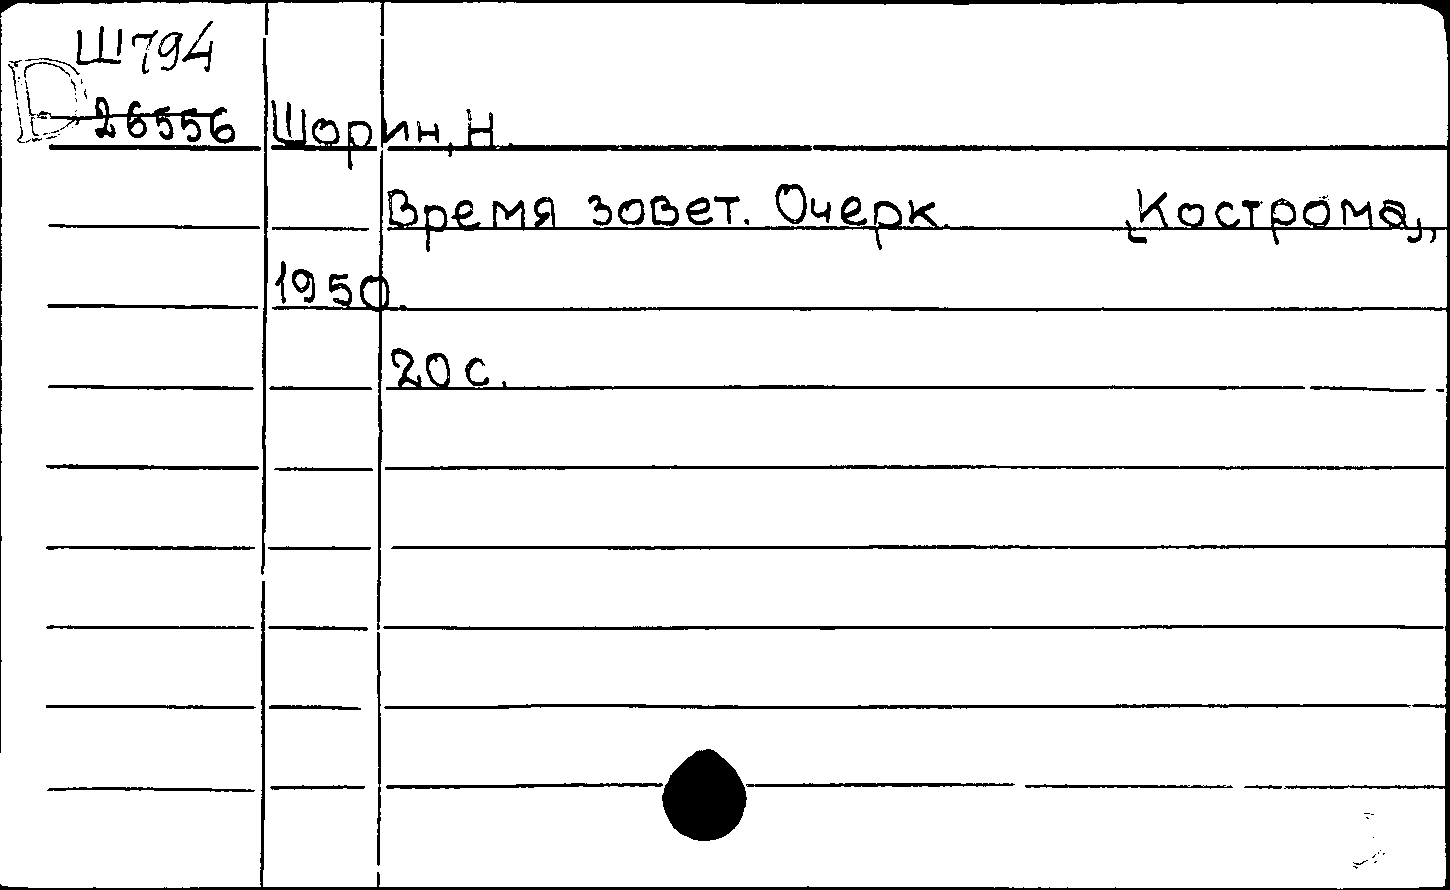 Ш794
D 26556 Шорин, Н.
Время зовет. Очерк. [Кострома],
1950.
20 с.